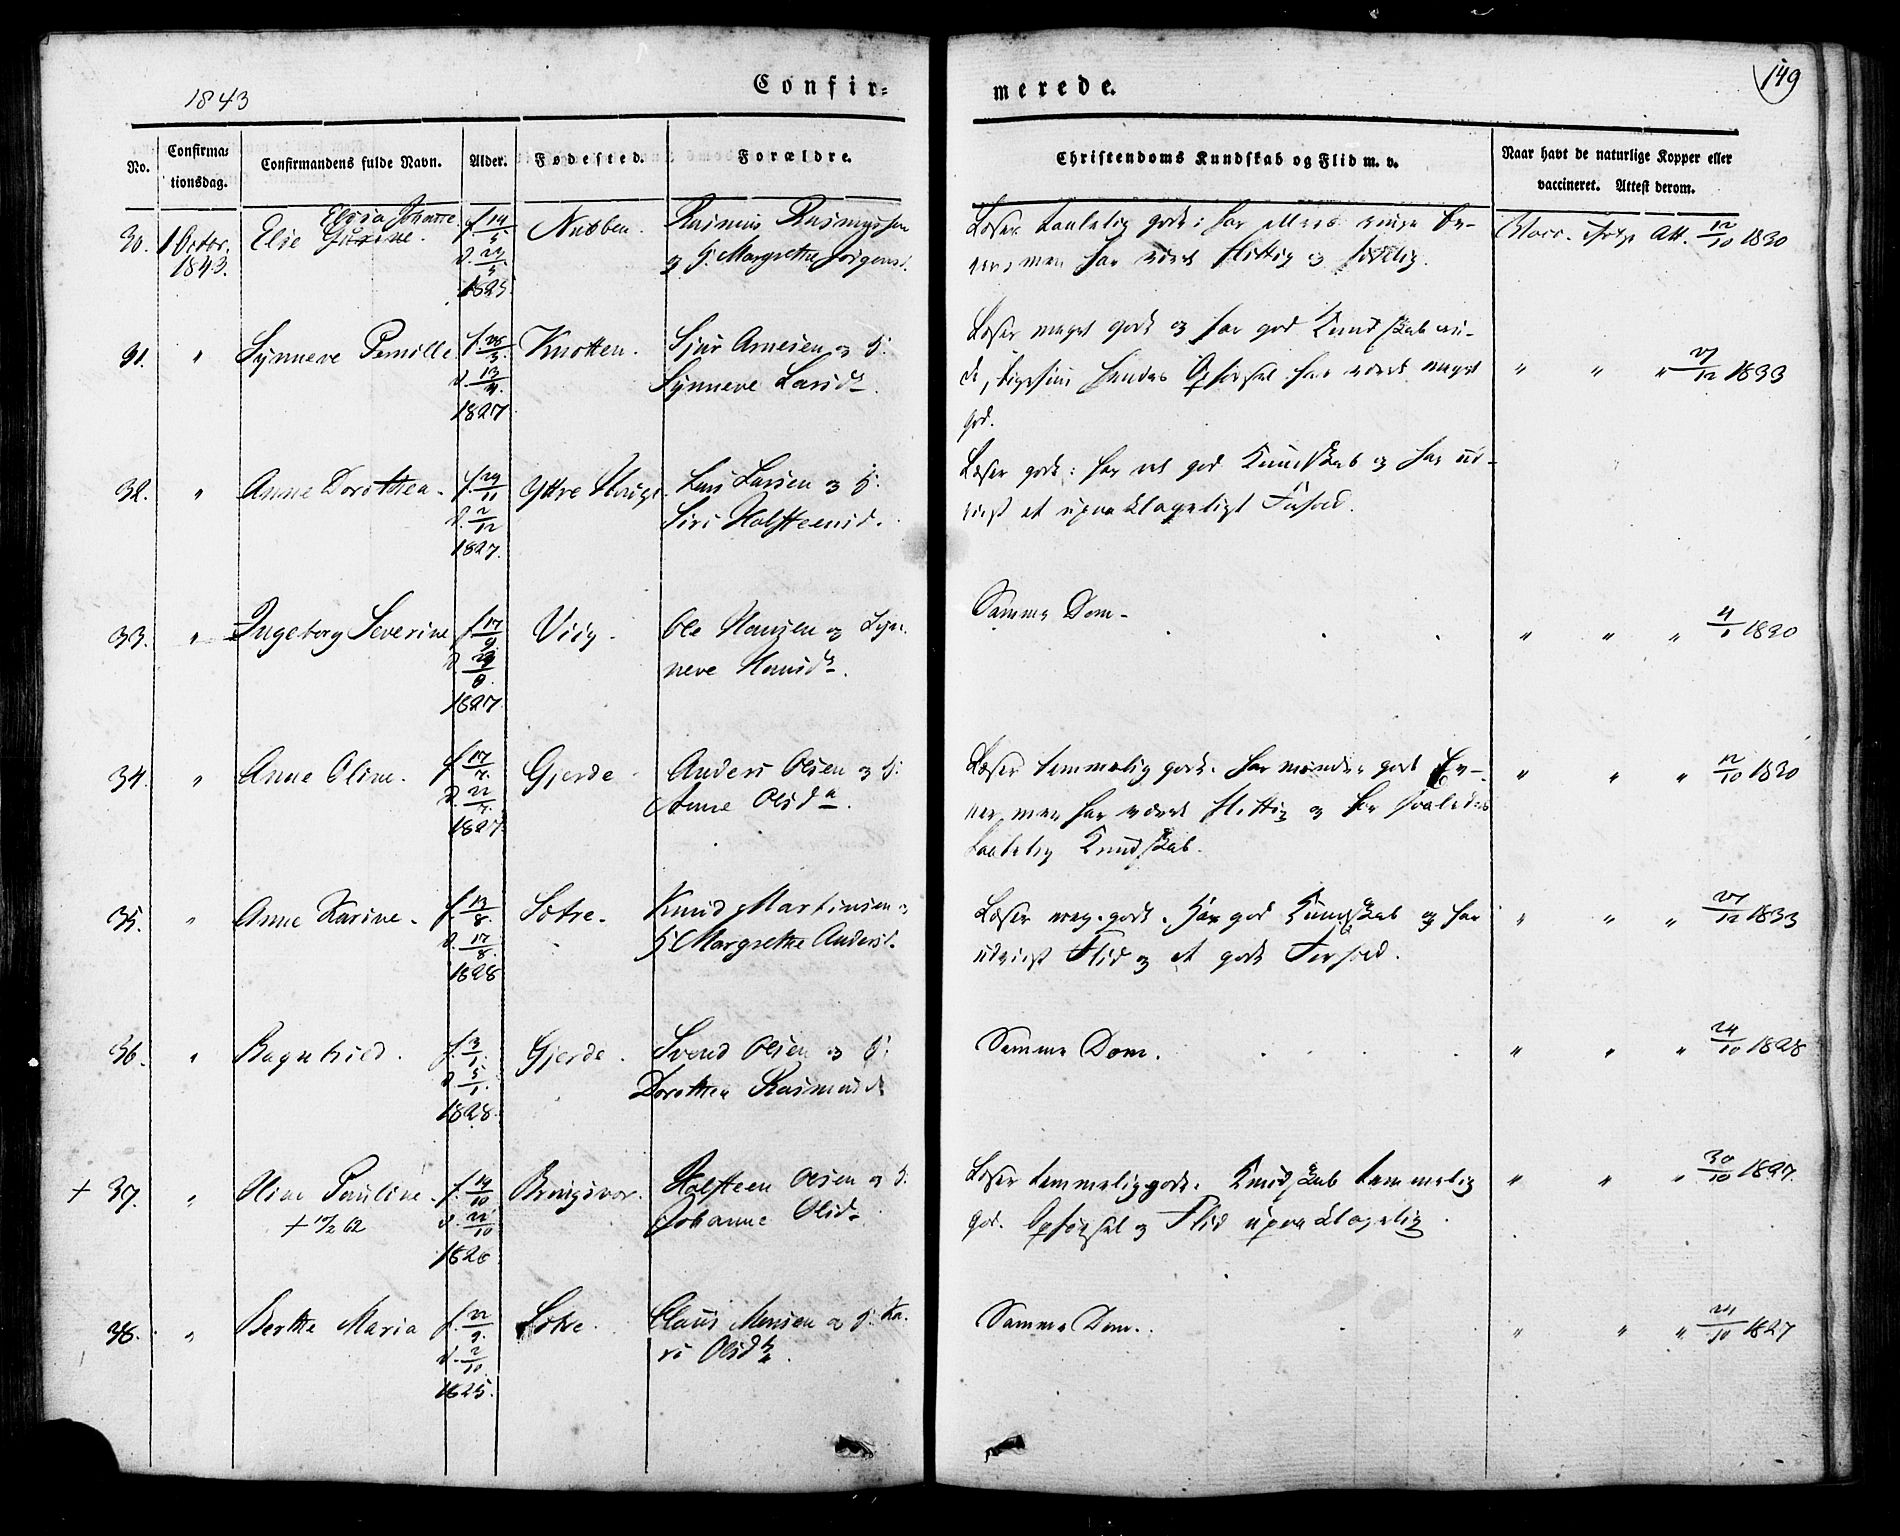 1843
Confir=
merede.
149
No.
Confirma=
tionsdag.
Confirmandens fulde Navn.
Alder.
Fødested.
Forældre.
Christendoms Kundskab og Flid m. v.
Naar havt de naturlige Kopper eller
vaccineret. Attest derom.
30. 1 Octbr. 1843. Else Gurine. Nubben. Rasmus Rasmussen
og H. Margrethe Jørgensd.
1825.
Læser taalelig godt: har ellers ringe Ev-
ner, men har været flittig og sædelig.
Vacc. Att. 12/10 1830
31. " Synneve Pernille f. 28/3. d. 13/4. 1827 Knotten. Sjur Arnesen og H.
Synneve Larsdr.
Læser meget godt og har god Kundskab
ligesom hendes Opførsel har været meget
god.
" " " 27/12 1833
32. " Anne Dorothea. f. 29/11 d. 2/12 1827. Yttre Lars Larsen og H.
Siri Holsteensd.
Læser godt: har og god Kundskab og har ud-
viist et upaaklageligt Forhold.
33. " Ingeborg Severine f. 17/9 1827 Viig. Ole Hansen og Syn-
neve Hansdr.
Samme Dom.
" " " 1830
34. " Anne Oline. f. 17/7. d. 22/7. 1827. Gjerde Anders Olsen og H.
Anne Olsdr.
Læser temmelig godt. har mindre gode Ev-
ner, men har været flittig og har saaledes
taalelig Kundskab.
" " " 12/10 1830
35. " Anne Karine. f. 13/8. d. 17/8. 1828 Sætre. Knud Martinsen og
H. Margrethe Andersd.
Læser meg. godt. Har god Kundskab og har
udviist Flid og et godt Forhold.
" " " 27/12 1833
36. " Ragnhild. f. 3/1. d. 5/1. 1828. Gjerde. Svend Olsen og H.
Dorothea Rasmusd.
Samme Dom.
" " " 24/10 1828
+ 37. " Oline Pauline. f. 19/10 d. 22/10 Bringsvor. Holsteen Olsen og H.
+ 62 Johanne Olsdr.
Læser temmelig godt. Kundskab temmelig
god. Opførsel og Flid upaaklagelig.
" " " 30/10 1827.
38. " Berthe Maria f. 22/9. d. 2/10. 1825. Sætre. Claus Monsen og H. Ka-
ri Olsdr.
Samme Dom.
" " " 24/10 1827